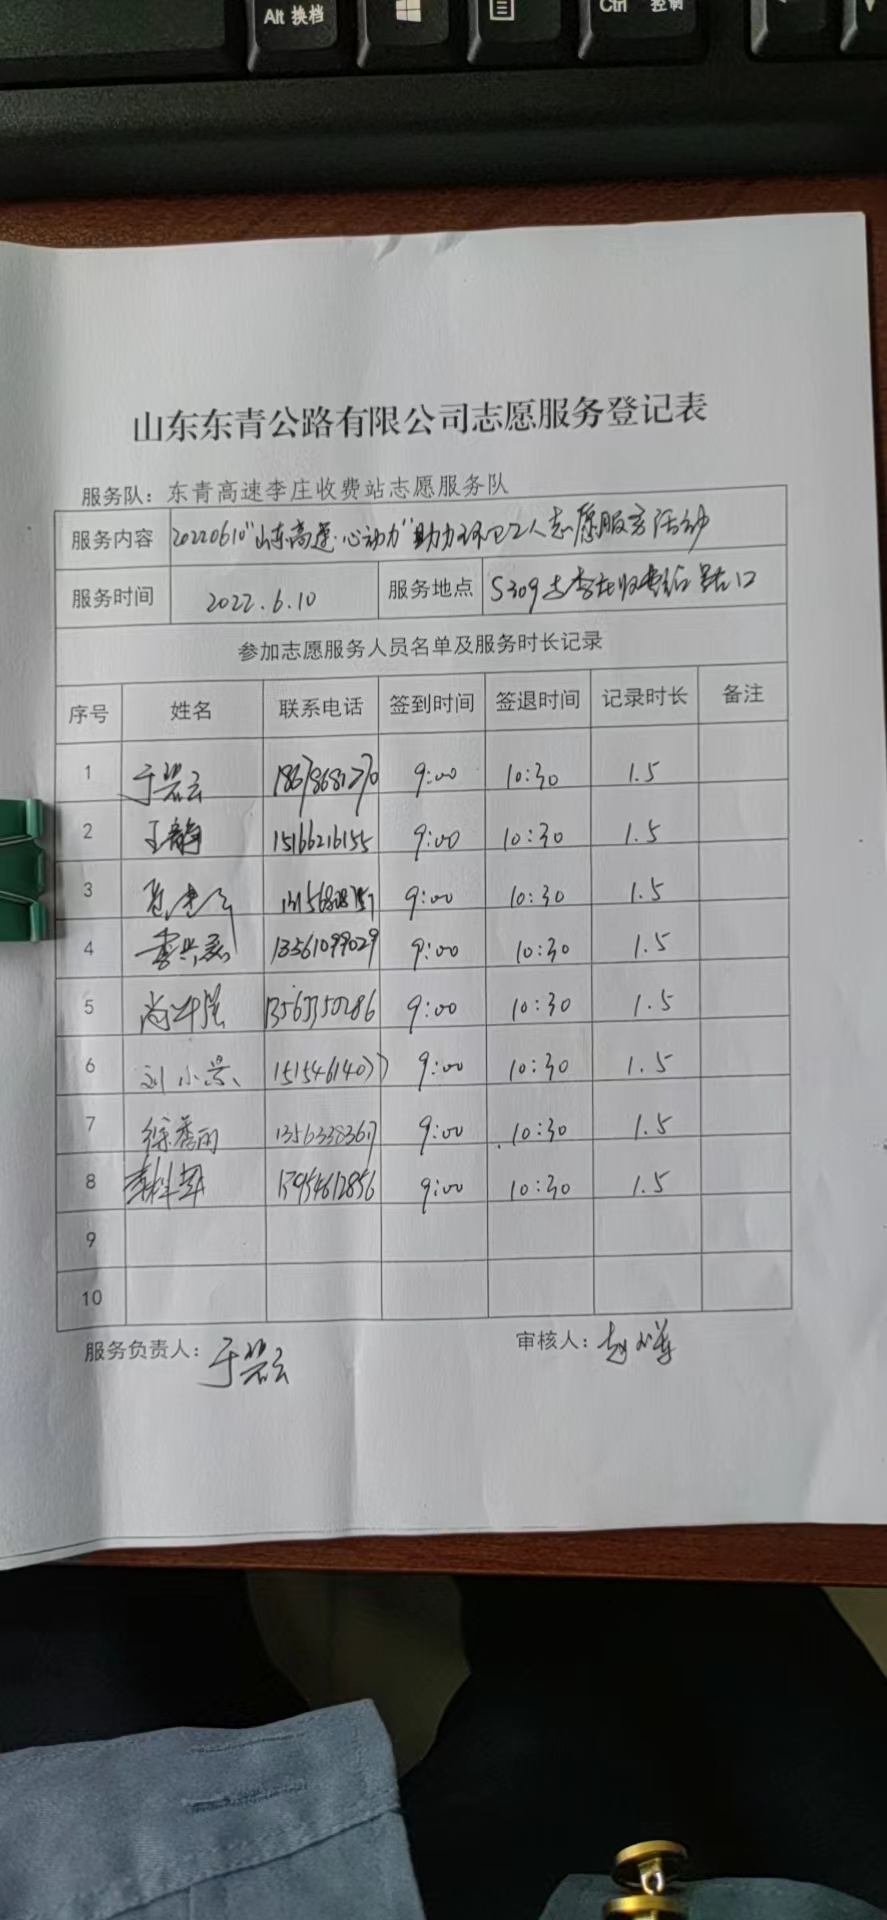 Alt 换档
Ctrl 控制
山东东青公路有限公司志愿服务登记表
服务队：东青高速李庄收费站志愿服务队
服务内容 20220610"山东高速·心动力"助力环卫工人志愿服务活动
服务时间 2022.6.10 服务地点 S309与李庄收费站路口
参加志愿服务人员名单及服务时长记录
序号 姓名 联系电话 签到时间 签退时间 记录时长 备注
1 于 云 18678681270 9:00 10:30 1.5
2 王静 15166216155 9:00 10:30 1.5
3 9:00 10:30 1.5
4 13561099029 9:00 10:30 1.5
5 9:00 10:30 1.5
6 刘小 15154614077 9:00 10:30 1.5
7 徐秀丽 9:00 10:30 1.5
8 9:00 10:30 1.5
9
10
服务负责人：于 云 审核人：赵